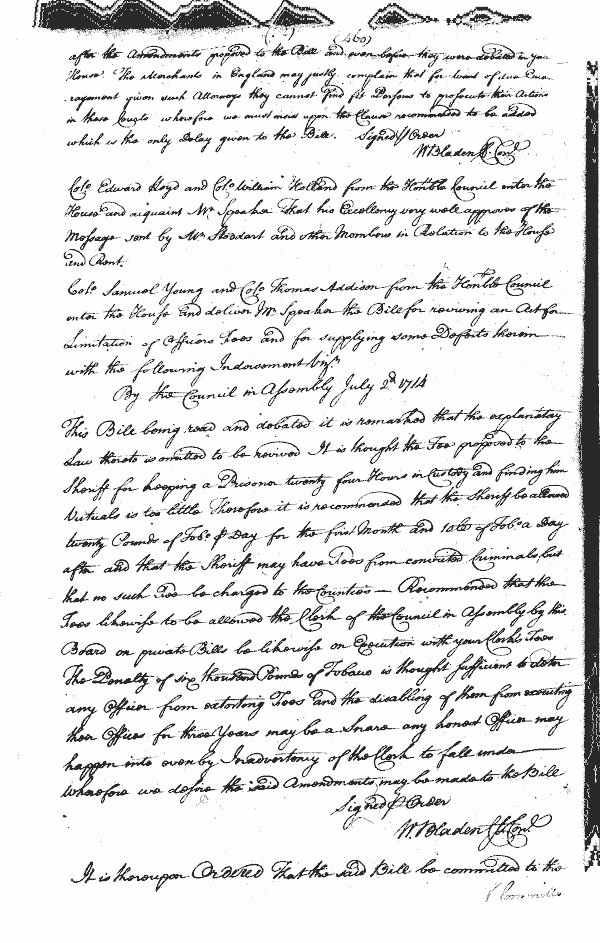 (460)
after the Amendments proposed to the Bill and even before they were debated in your
House. The Merchants in England may justly complain that for want of due Encou
ragement given such Attorneys they cannot find fit Persons to prosecute their Actions
in these Courts wherefore we must insist upon the Clause recommended to be added
which is the only Delay given to the Bill. Signed p Order
W Bladen Cl. Conl
Colo. Edward Lloyd and Colo. William Holland from the Honble Council enter the
House and acquaint Mr. Speaker That his Excellency very well approves of the
Message sent by Mr. Stoddart and other Members in Relation to the House
and Rent.
Colo. Samuel Young and Colo. Thomas Addison from the Honble Council
enter the House and deliver Mr. Speaker the Bill for reviving an Act for
Limitation of Officers Fees and for supplying some Defects therein
with the following Indorsement Vizt.
By the Council in Assembly July 2d 1714
This Bill being read and debated it is remarked that the explanatory
Law thereto is omitted to be revived It is thought the Fee proposed to the
Sheriff for keeping a Prisoner twenty four Hours in Custody and finding him
Victuals is too little Therefore it is recommended that the Sheriff be allowed
twenty Pounds of Tobo. p Day for the first Month and 10lb of Tobo a Day
after and that the Sheriff may have Fees from convicted Criminals, but
that no such Fee be charged to the Counties — Recommended that the
Fees likewise to be allowed the Clerk of the Council in Assembly by this
Board on private Bills be likewise on Execution with your Clerks Fees
The Penalty of six thousand Pounds of Tobacco is thought sufficient to deter
any Officer from extorting Fees and the disabling of them from executing
their Offices for three Years may be a Snare any honest Officer may
happen into even by Inadvertency of the Clerk to fall under
wherefore we desire the said Amendments may be made to the Bill
Signed p Order
W. Bladen Cl. Conl
It is thereupon Ordered That the said Bill be committed to the
Committee